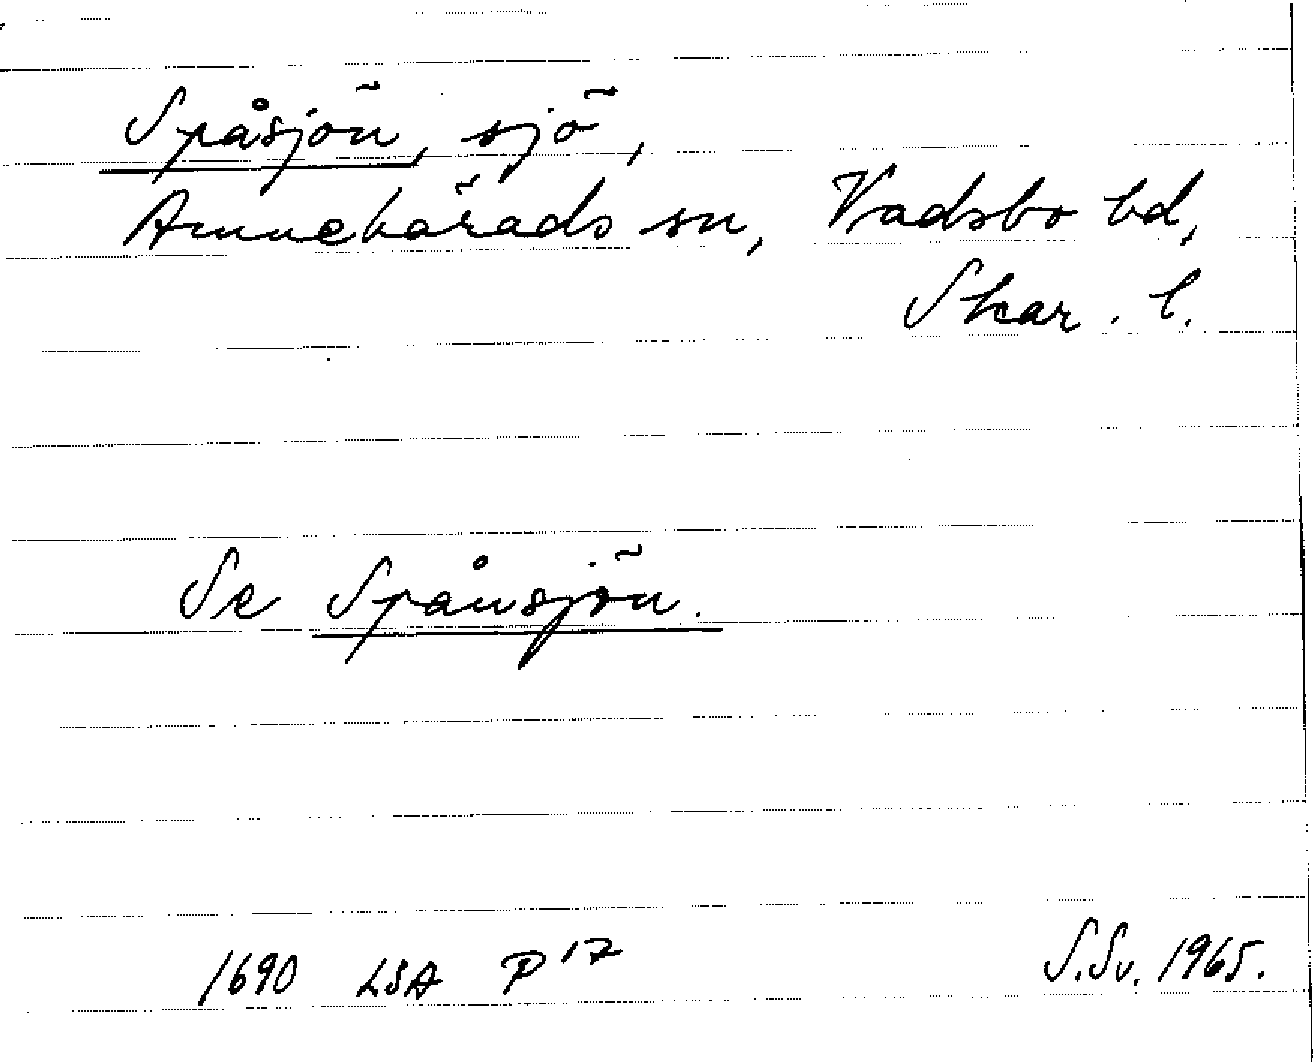 Spåsjön, sjö,
Amnehärads sn, Vadsbo hd,
Skar. l.
Se Spånsjön.
1690 LSA P 17
S.Sv. 1965.